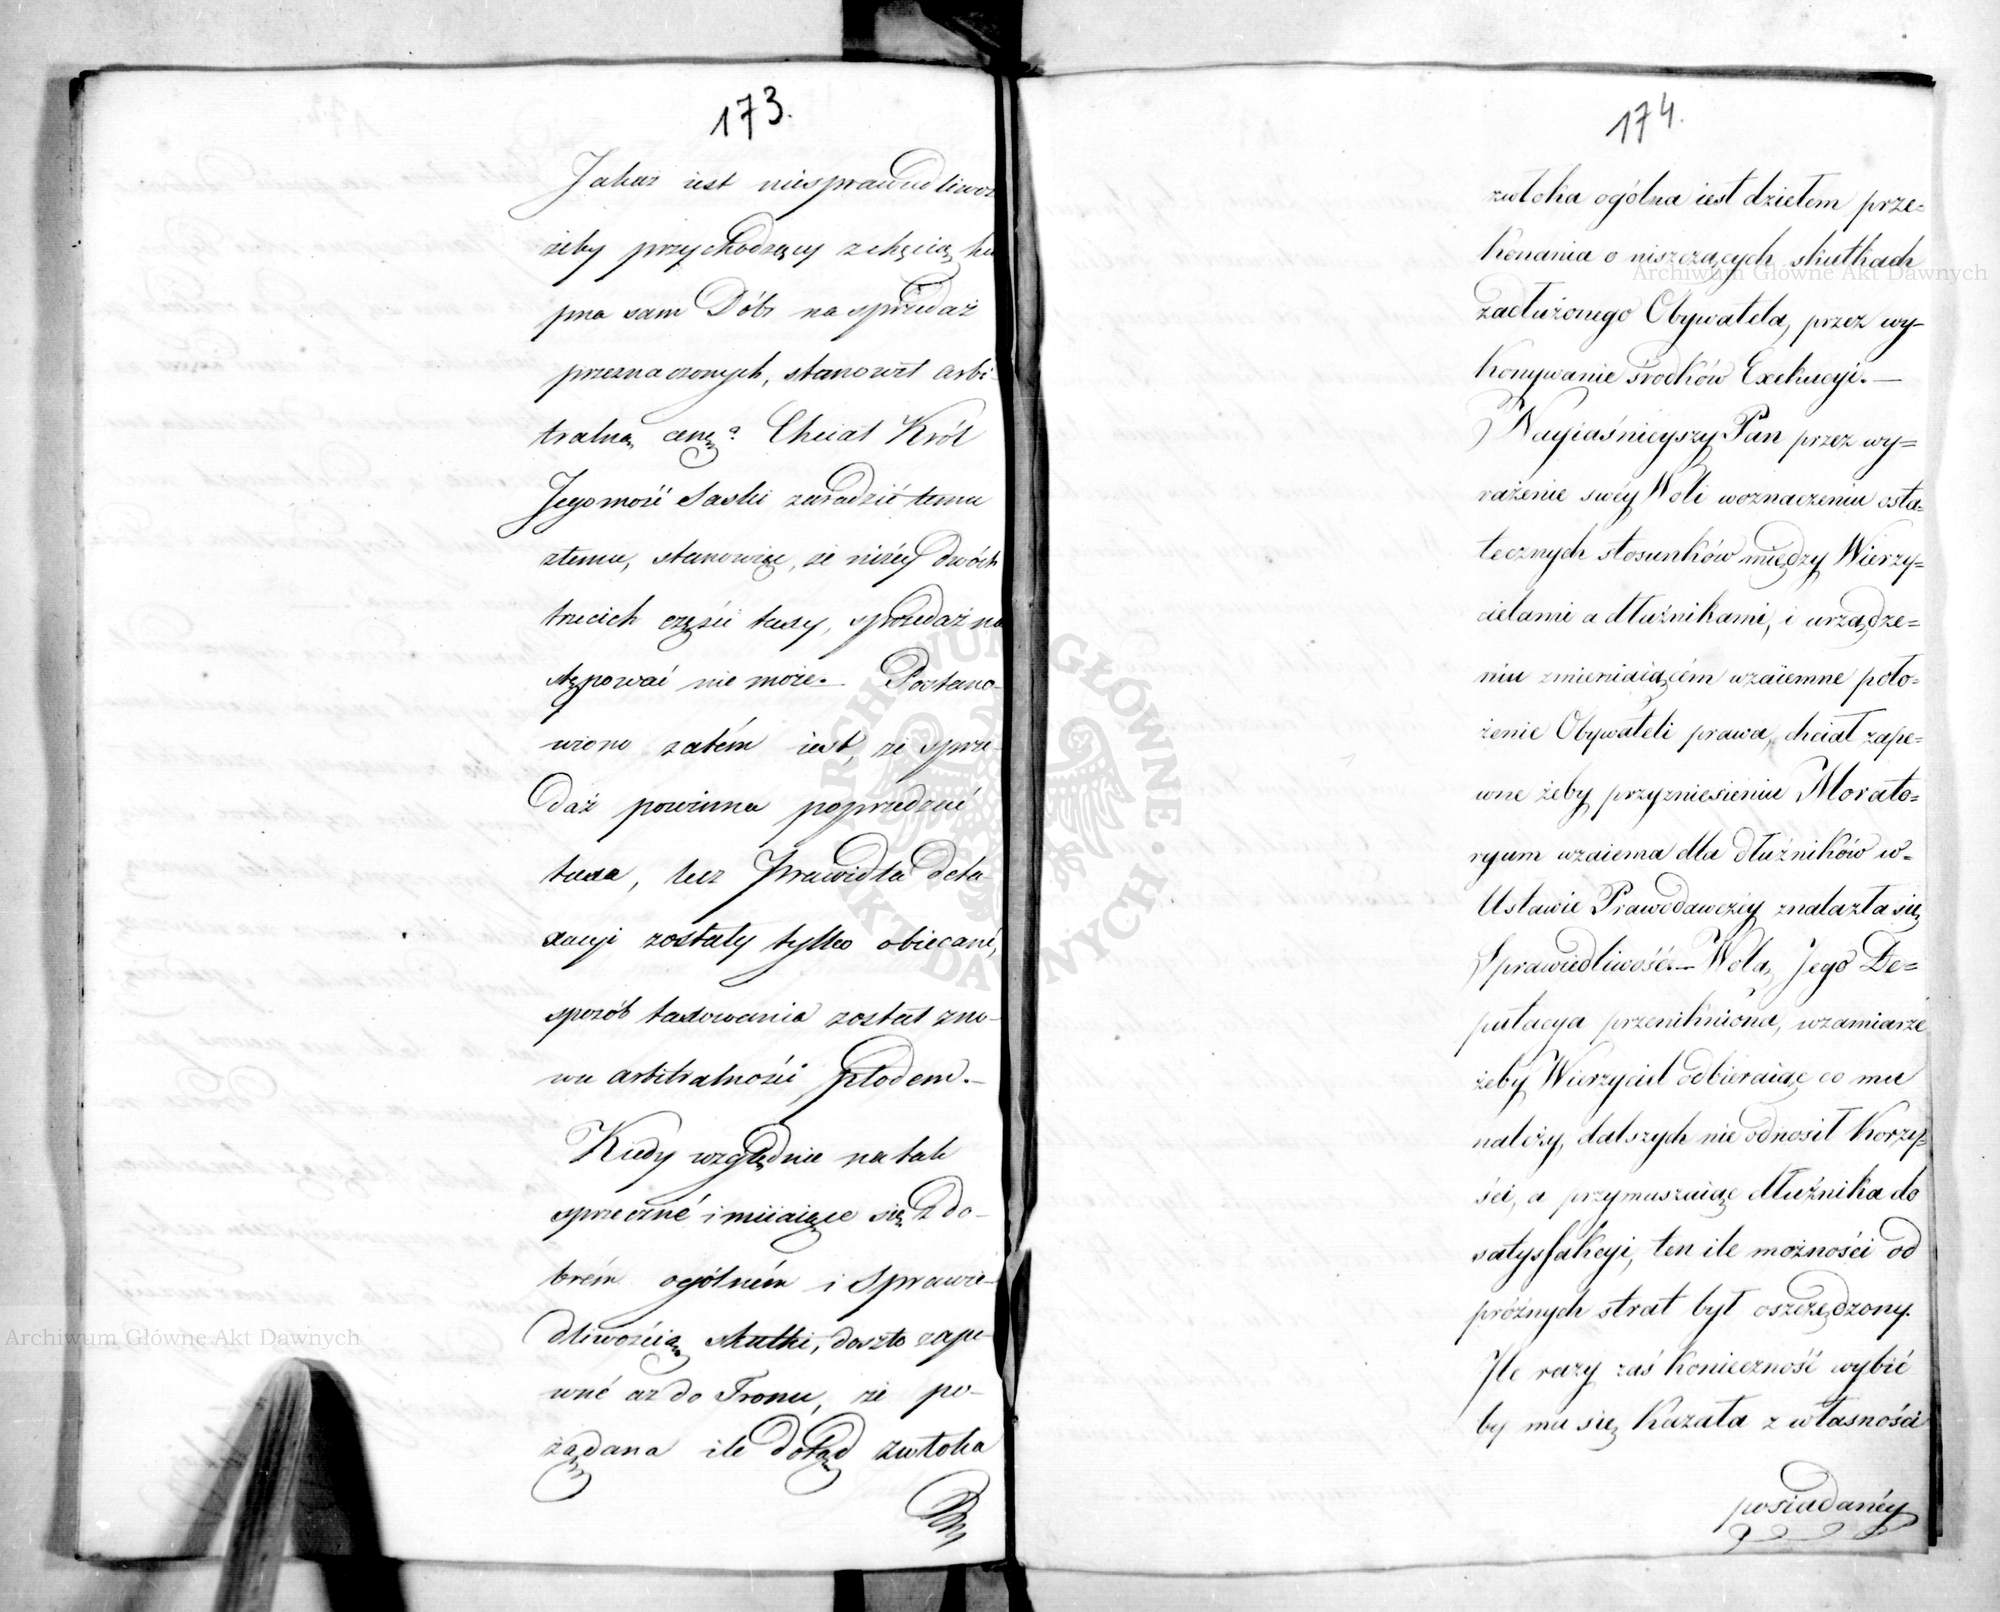 173.
Jakaż iest niesprawiedliwoś
żeby przychodzący z chęcią ku
pna sam Dóbr na sprzedaż
przeznaczonych, stanowił arbi-
tralną cenę? Chciał Król
Jegomość Saski zaradzić temu
złemu, stanowiąc, że niżéy dwóch
trzecich części taxy, sprzedaż na
stępować nie może. Postano-
wiono zatém iest, że sprze-
daż powinna poprzedzić
taxa, lecz Prawidła deta
xacyi zostały tylko obiecané,
sposób taxowania został zno-
wu arbitralności płodem.—
Kiedy względnie na tak
sprzeczné i miiaiące się z do-
brém ogólném i Sprawie-
dliwością skutki, doszło zape-
wné aż do Tronu, że po-
żądana ile dotąd zwłoka
174.
zwłoka ogólna iest dziełem prze-
konania o niszczących skutkach
zadłużonego Obywatela, przez wy-
konywanie środków Exekucyi.—
Nayiaśnieyszy Pan przez wy-
rażenie swéy Woli w oznaczeniu osta-
tecznych stosunków między Wierzy-
cielami a dłużnikami, i urządze-
niu zmieniaiącém wzaiemne poło-
żenie Obywateli prawa, chciał zape-
wne żeby przy zniesieniu Morato-
ryum wzaiemna dla dłużników w-
Ustawie Prawodawczéy znalazła się
Sprawiedliwość.— Wolą Jego De-
putacya przenikniona, w zamiarze
żeby Wierzyciel odbieraiąc co mu
należy, dalszych nie odnosił korzy-
ści, a przymuszaiąc dłużnika do
satysfakcyi, ten ile możności od
próżnych strat był oszczędzony.
Ile razy zaś konieczność wybić
by mu się kazała z własności
posiadanéy
Archiwum Główne Akt Dawnych
Archiwum Główne Akt Dawnych
ARCHIWUM GŁÓWNE AKT DAWNYCH